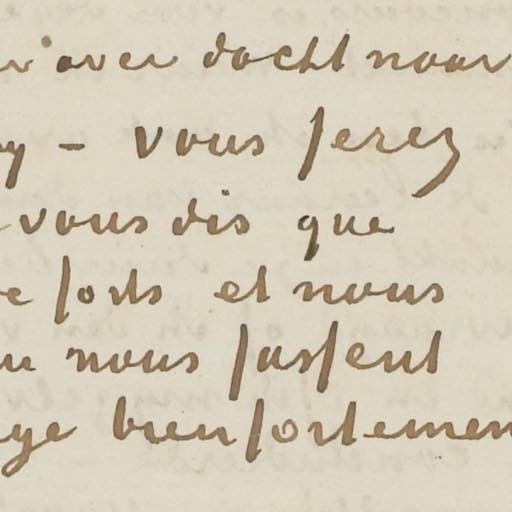 over dacht naar
y – vous serez
vous dis que
forts et nous
nous fassent
bien fortement